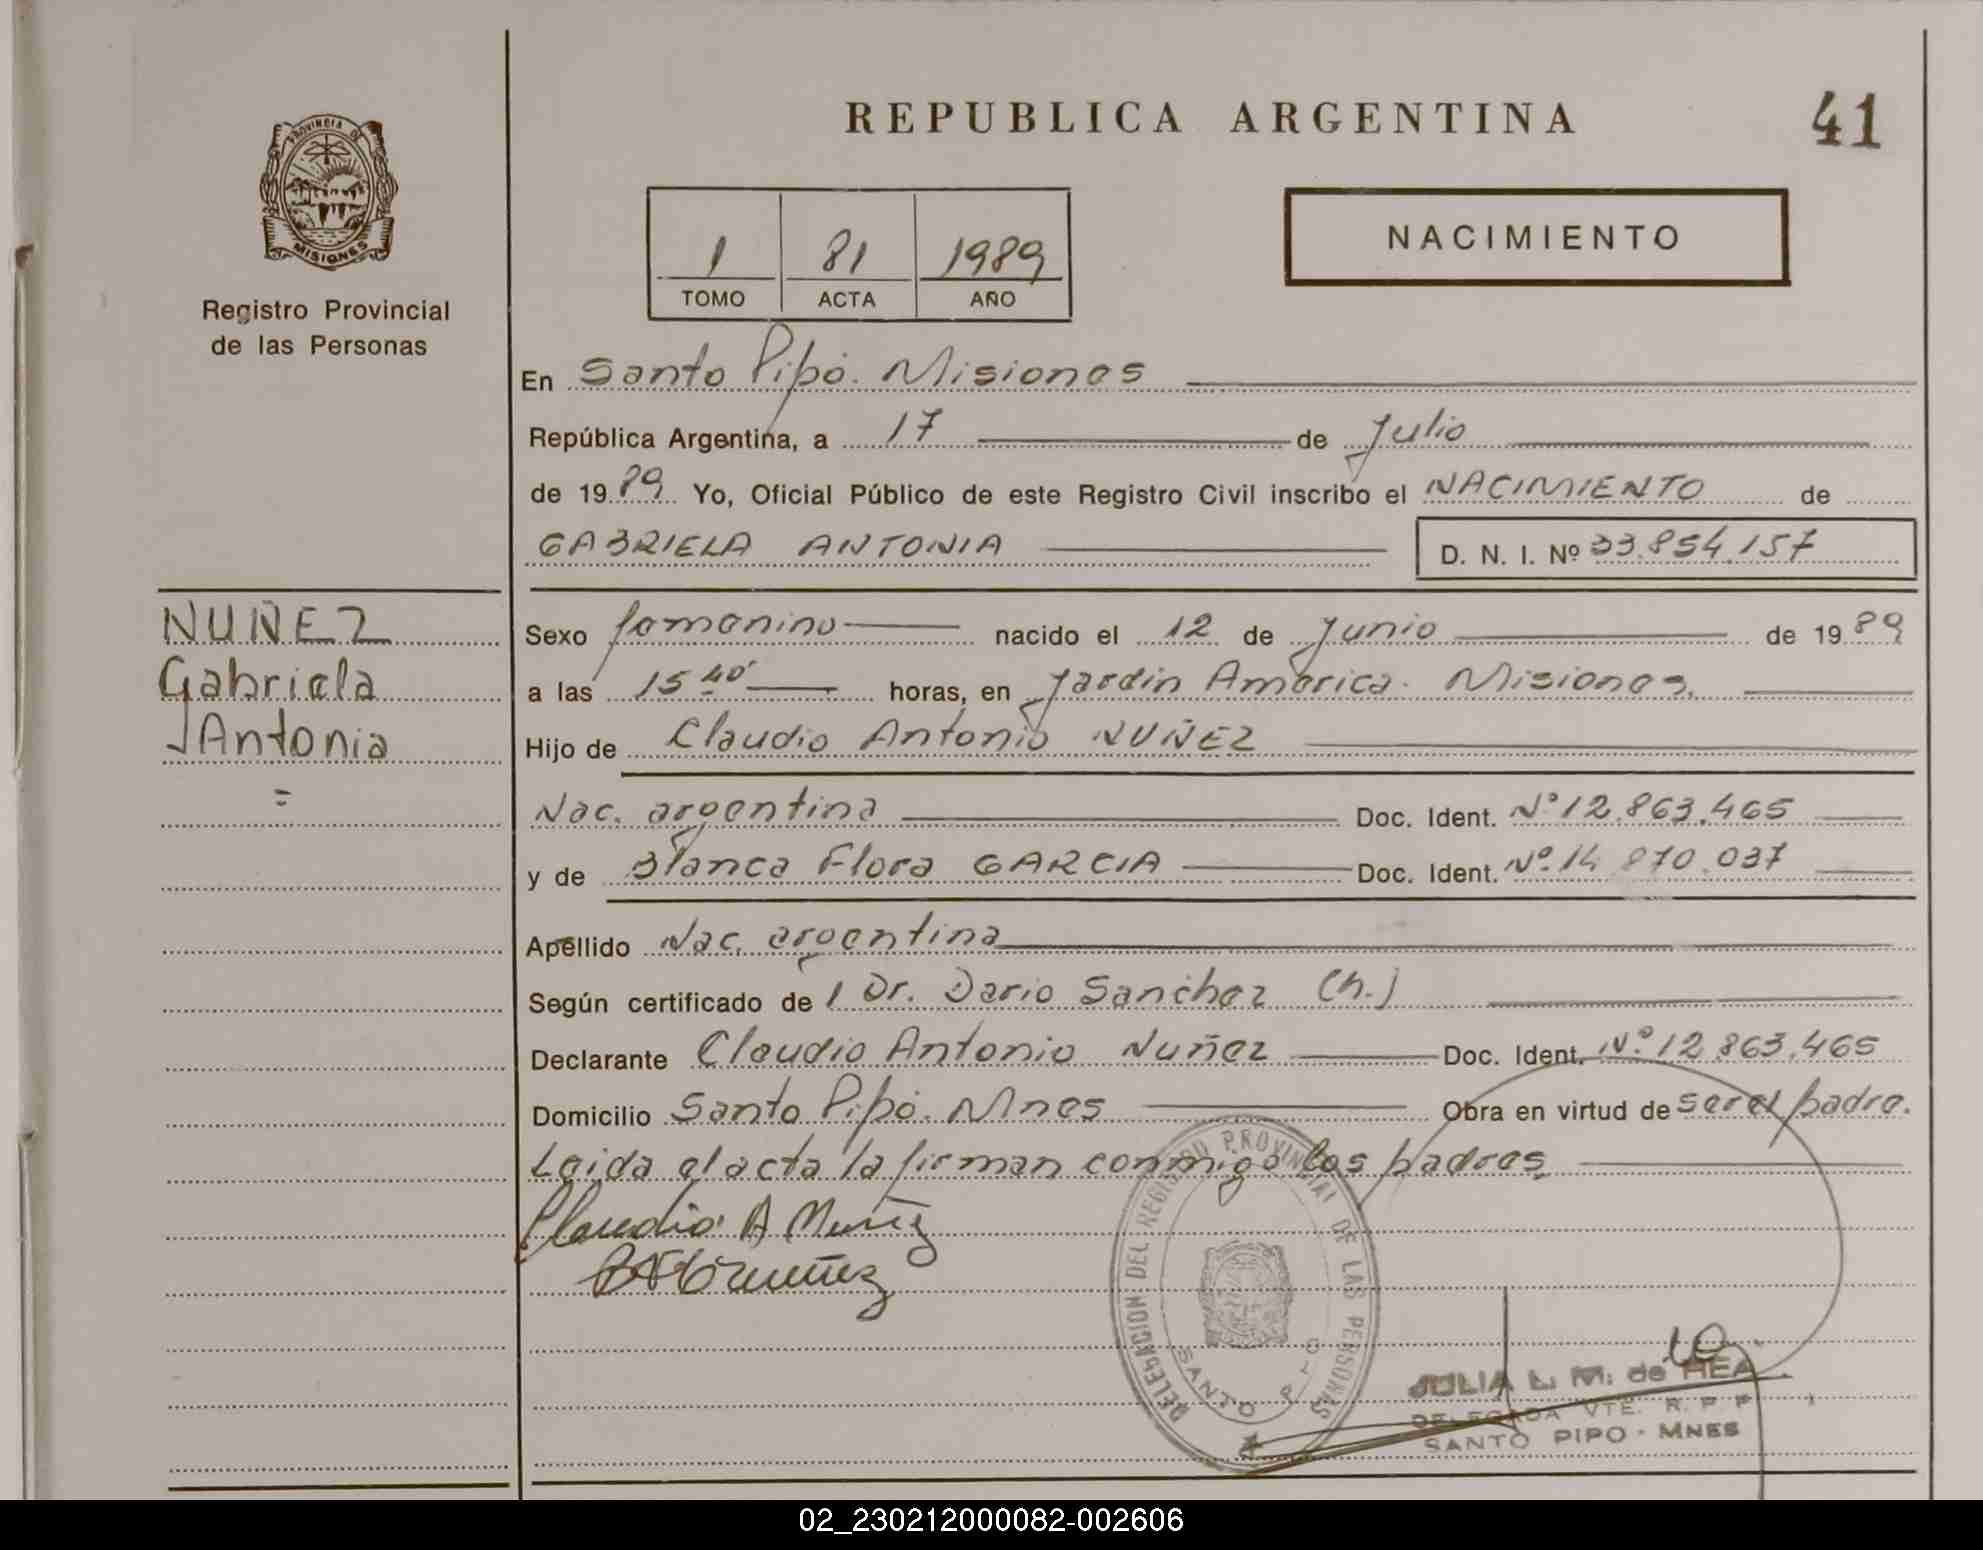 REPUBLICA ARGENTINA
41
PROVINCIA DE
MISIONES
Registro Provincial
de las Personas
1 81 1989
TOMO ACTA AÑO
NACIMIENTO
En Santo Pipó. Misiones
República Argentina, a 17 de Julio
de 1989 Yo, Oficial Público de este Registro Civil inscribo el NACIMIENTO de
GABRIELA ANTONIA D. N. I. Nº 33.854.157
NUÑEZ
Gabriela
Antonia
=
Sexo femenino nacido el 12 de Junio de 1989
a las 15 40' horas, en Jardin America. Misiones.
Hijo de Claudio Antonio NUÑEZ
Nac. argentina Doc. Ident. Nº 12.863.465
y de Blanca Flora GARCIA Doc. Ident. Nº 14 870.037
Apellido Nac. argentina
Según certificado de l Dr. Dario Sanchez (h.)
Declarante Claudio Antonio Nuñez Doc. Ident. Nº 12.863.465
Domicilio Santo Pipó. Mnes Obra en virtud de ser el padre.
Leida el acta la firman conmigo los padres.
Claudio A Nuñez
DELEGACION DEL REGISTRO PROVINCIAL DE LAS PERSONAS
SANTO PIPO
JULIA L. M. de REA
DELEGADA VTE. R. P. P.
SANTO PIPO - MNES
02_230212000082-002606